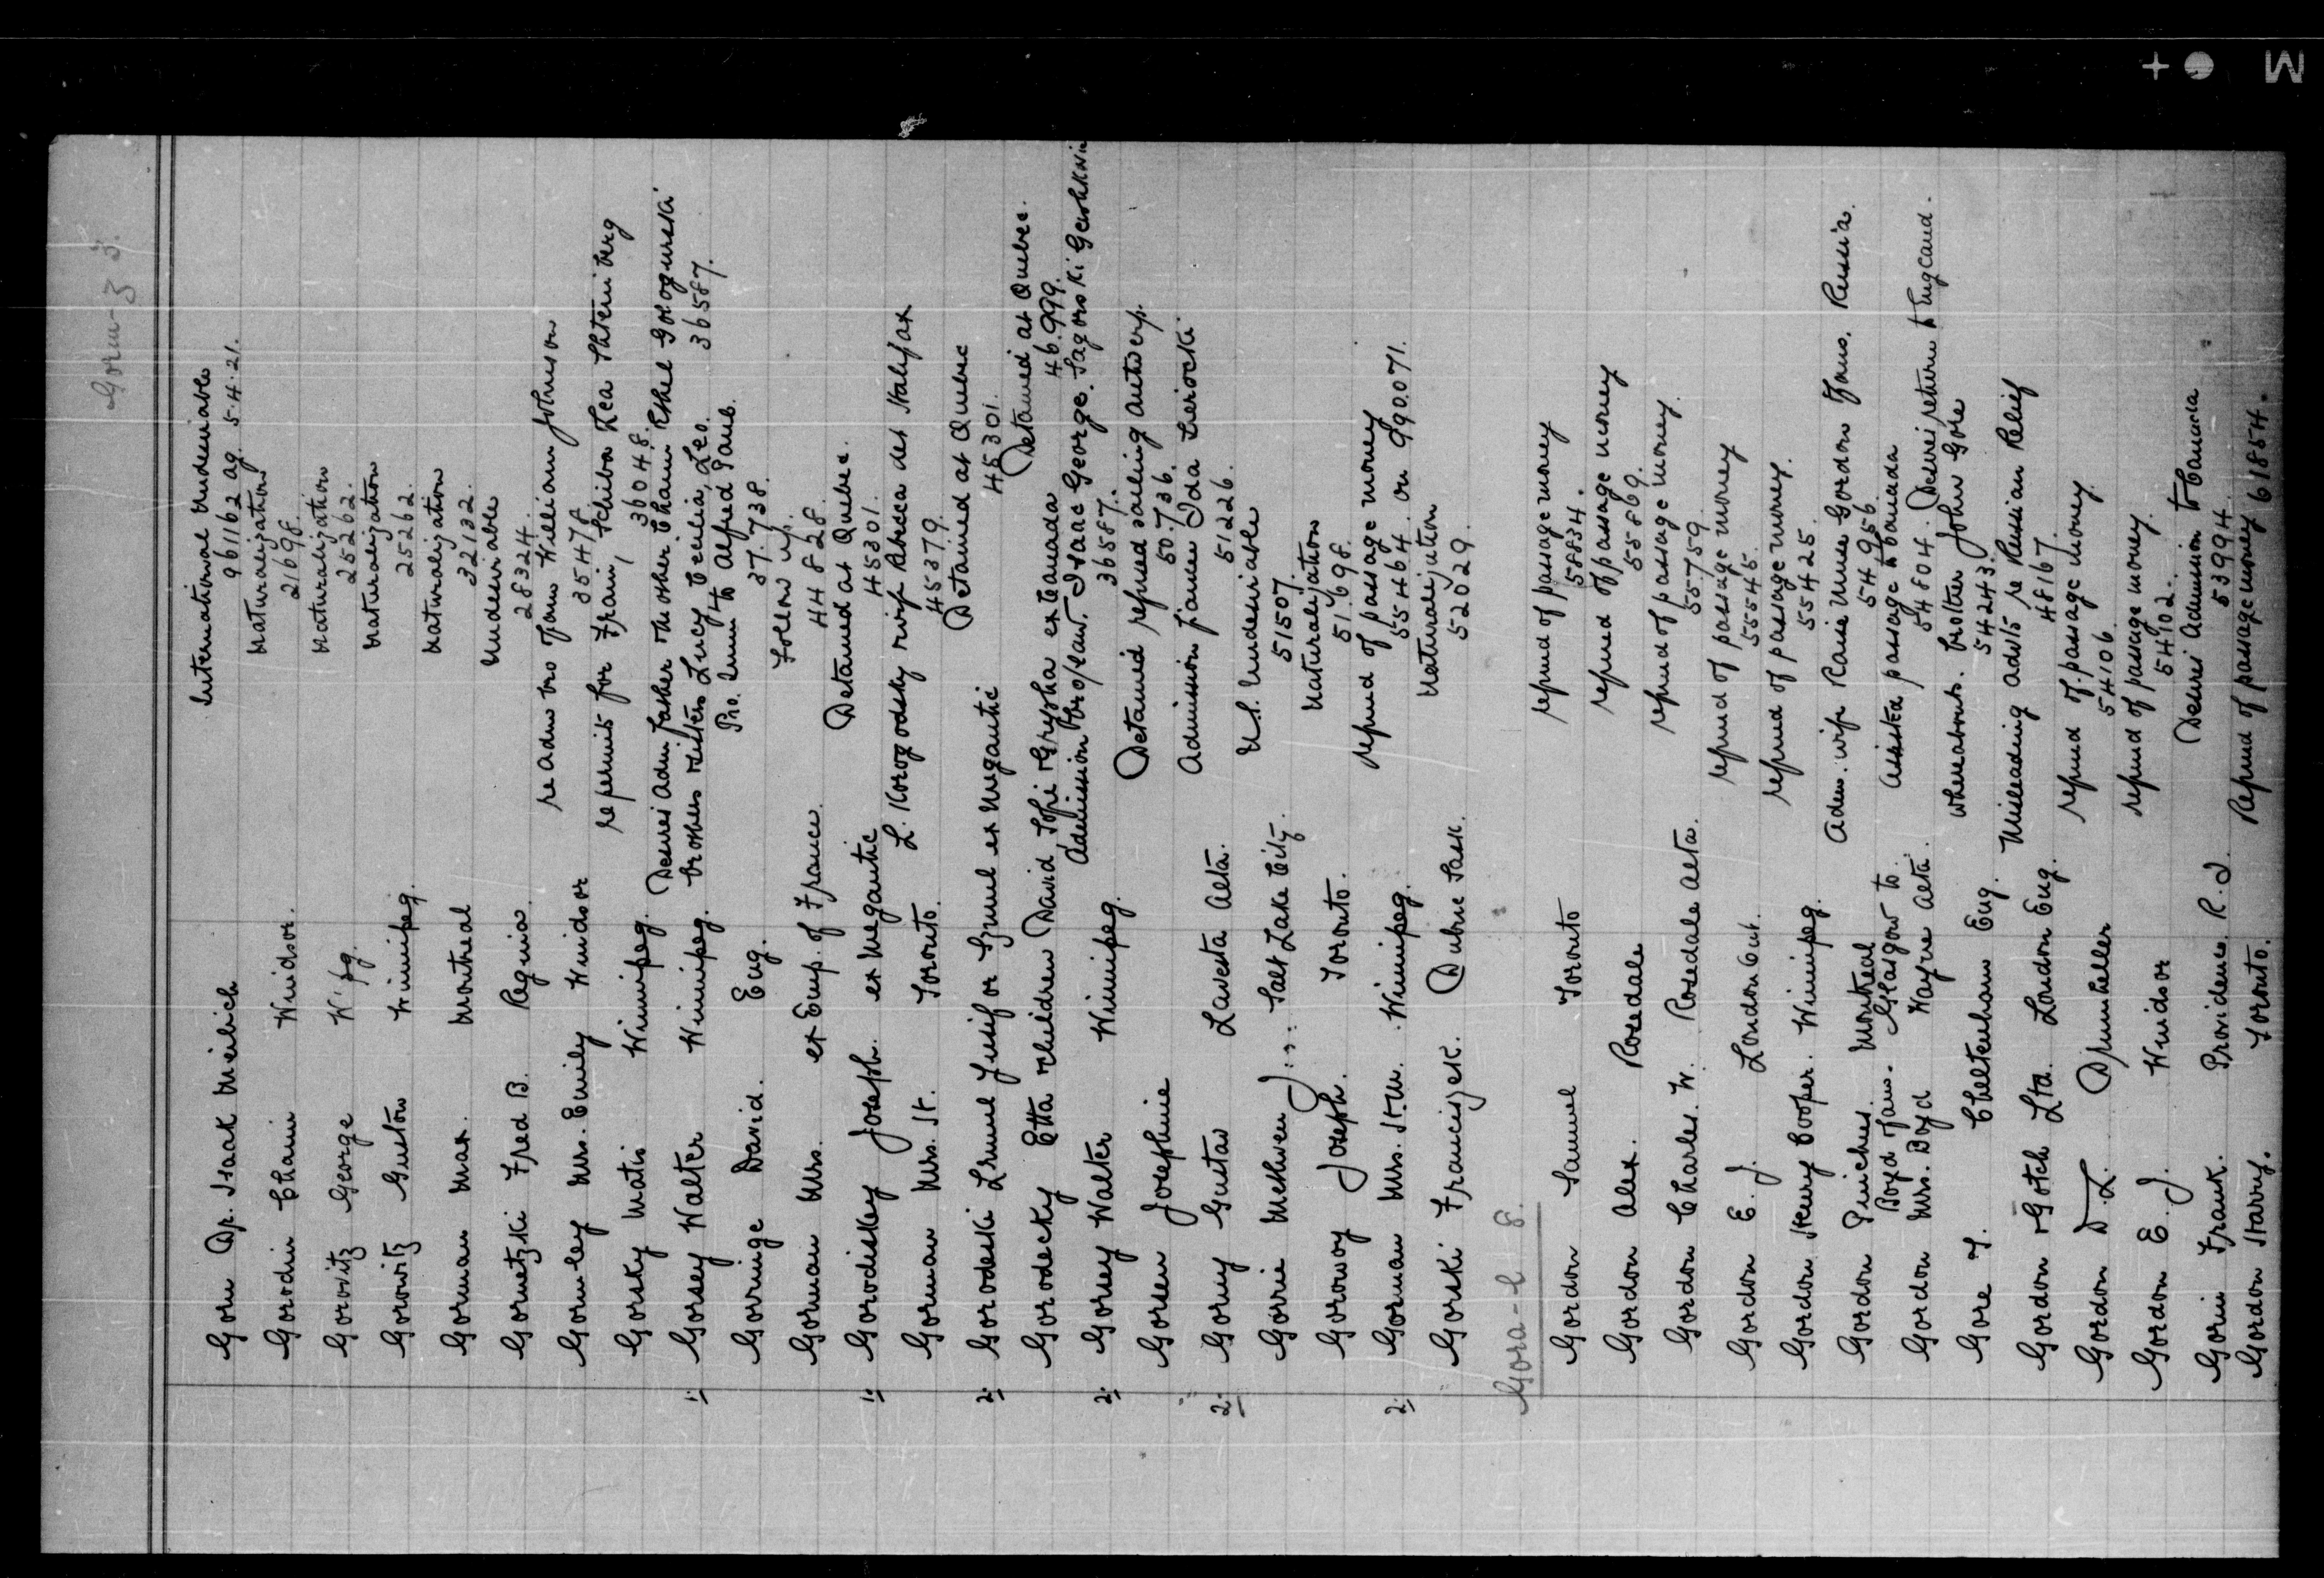 Gorm-Z 3.
Gorn Dr. Isaak Meilich International Undesirable
961162 ag. 5.4.21.
Gorodin Chaim Windsor. Naturalization
21698.
Gorovitz George W'pg. Naturalization
25262.
Gorowitz Gueton Winnipeg. Naturalization
25262.
Gorman Max. Montreal Naturalization
32132.
Gornetzki Fred B. Regina. Undesirable
28324.
Gormley Mrs. Emily Windsor re adm bro Jams William Johnson
35478
Gorsky Matis Winnipeg. re permits for Fraim, Schiba Lea Shteinberg
36048.
1. Gorsey Walter Winnipeg. Desires adm father mother Chaim Ethel Gologurski
brothers sisters Lucy Cecilia, Leo. 36587.
Gorringe David. Eng. Pro. Imm to Alfred Paub.
37.738.
Gorman Mrs. ex Emp. of France. Follow up.
44828.
1. Gorodiskey Joseph. ex Megantic Detained at Quebec.
45301.
Gorman Mrs. H. Toronto. L. Korogodsky wife Rebecca det Halifax
45379.
2. Gorodeski Srmul Jusif or Szmul ex Megantic Detained at Quebec
45301.
Gorodecky Etta children David Sofie Grysha ex Canada Detained at Quebec.
46.999.
2. Gorsey Walter Winnipeg. Admission bro/law. Isaac George. Sagorski Gershkwi
36587.
Gorsen Josephine Detained refused sailing Antwerp.
50.736.
2. Gorny Gustav Lavesta Alta. Admission fiancee Ida Lierocki
51226.
Gorrie Methven J... Salt Lake City. U.S. Undesirable
51507.
Gorowoy Joseph. Toronto. Naturalization
51.698.
2. Gorman Mrs. H.W. Winnipeg. Refund of passage money
55464. on 990.071.
Gorski Franciszek. Dubuc Sask. Naturalization
52029.
Gora-l 8.
Gordon Samuel Toronto refund of passage money
58834.
Gordon Alex. Rosedale refund of passage money
55869.
Gordon Charles. W. Rosedale Alta. refund of passage money.
55759.
Gordon E. J. London Ont. refund of passage money
55545.
Gordon Henry Cooper. Winnipeg. refund of passage money.
55425.
Gordon Pinches. Montreal Adm. wife Raise nnee Gordon Fams. Russia.
54956.
Boyd Jams. Glasgow to
Gordon Mrs. Boyd Wayne Alta. Assisted passage to Canada
54804. Desires return to England.
Gore T. Cheltenham Eng. whereabouts. brother John Gore
54243.
Gordon & Gotch Ltd. London Eng. Misleading advts re Russian Relief
48167.
Gordon D.L. Drumheller refund of passage money.
54106.
Gordon E. J. Windsor refund of passage money.
54102.
Gorin Frank. Providence. R.I. Desires Admission to Canada
53994.
Gordon Harry. Toronto. Refund of passage money 61854.